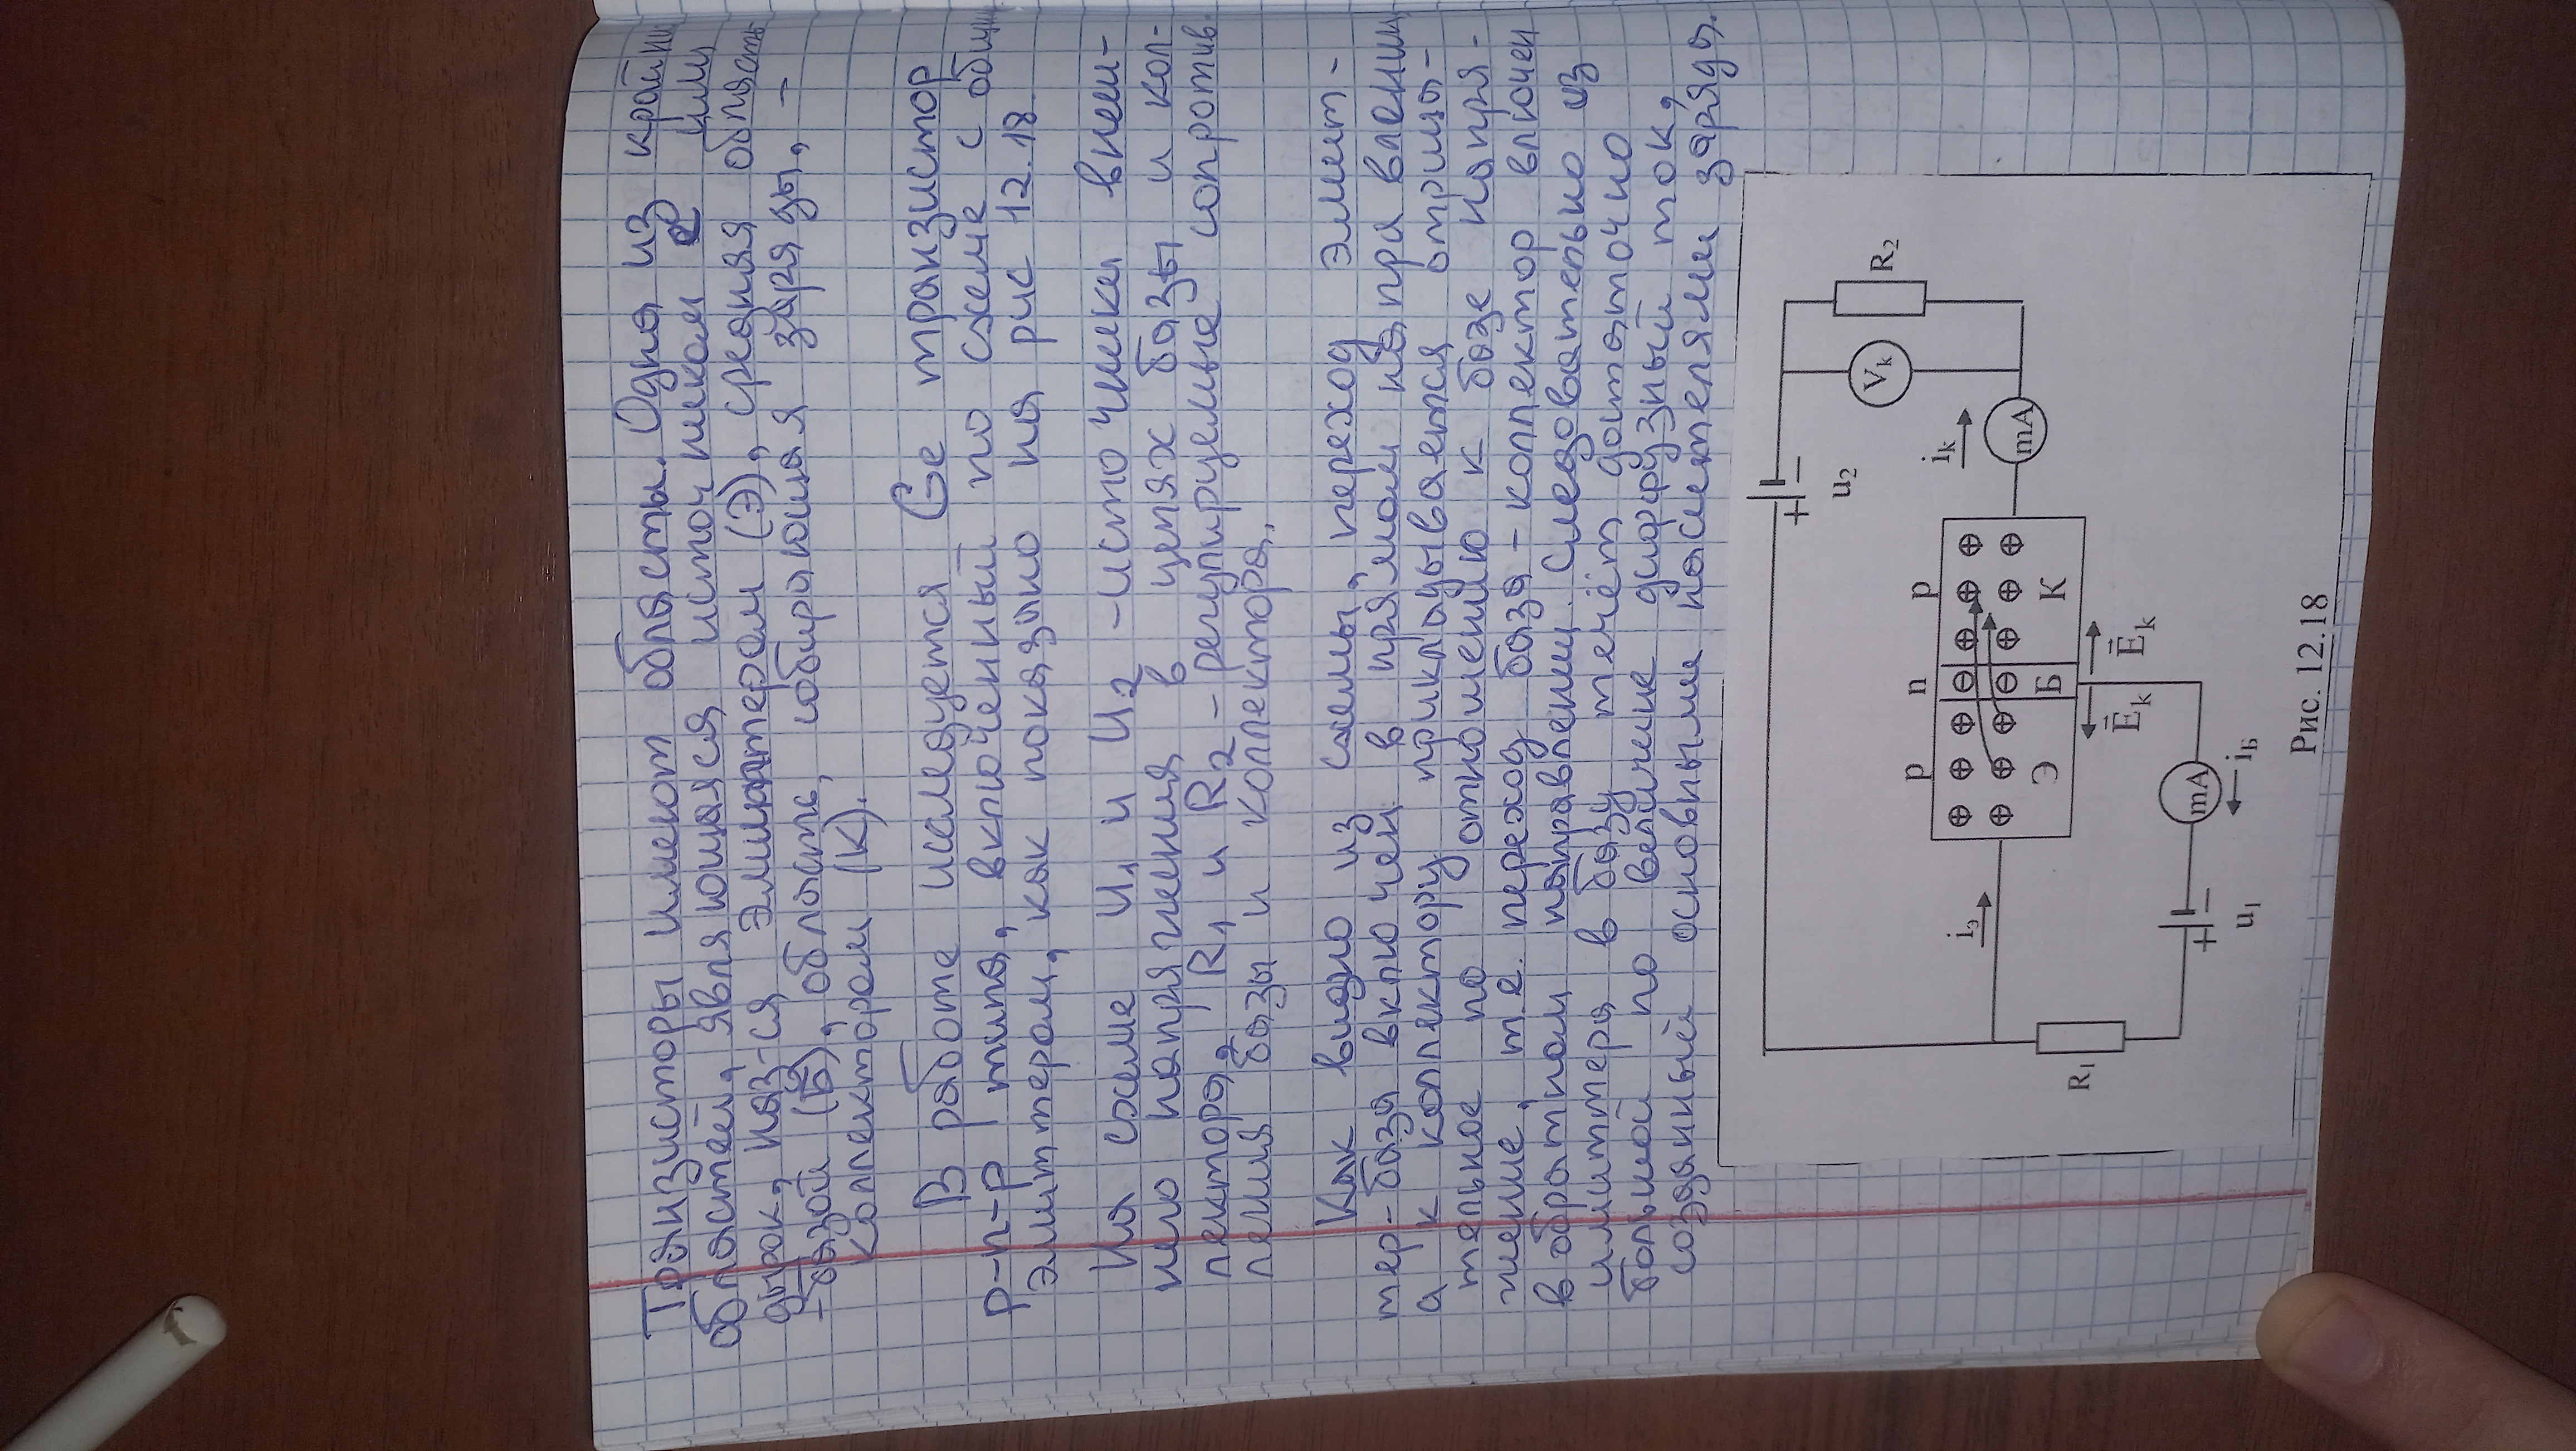 Транзисторы имеют области. Одна из крайни
областей, являющаяся источником e или
дырок, наз-ся эмиттером (Э), средняя область
-базой (Б), область, собирающая заряды, -
коллектором (К).
В работе исследуется Ge транзистор
p-n-p типа, включенный по схеме с общим
эмиттером, как показано на рис 12.18
На схеме U₁ и U₂ -источники внеш-
него напряжения в цепях базы и кол-
лектора, R₁ и R₂ - регулируемые сопротив
ления базы и коллектора.
Как видно из схемы, переход эмит-
тер-база включен в прямом направлении
а к коллектору прикладывается отрица-
тельное по отношению к базе напря-
жение, т.е. переход база - коллектор влючен
в обратном направлении. Следовательно из
имиттера в базу течёт достаточно
большой по величине диффузный ток,
созданный основными носителями заряда.
+ −
u₂
Vk
R₂
p n p
iэ
ik
Э Б К
mA
R₁
E⃗k E⃗k
+ −
mA
u₁
iБ
Рис. 12.18